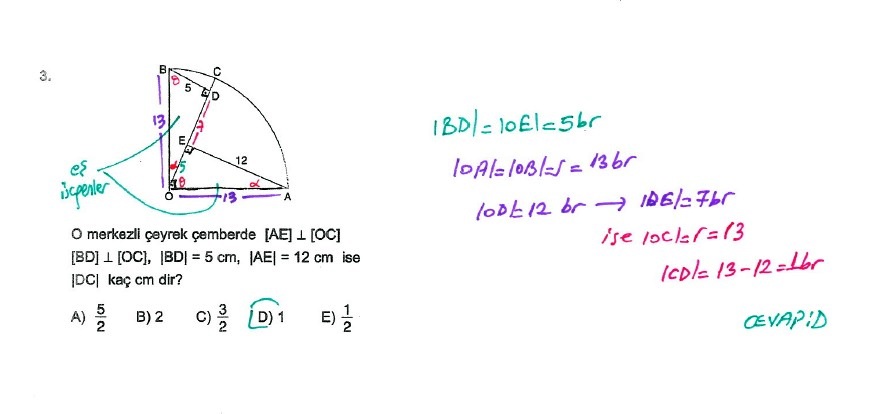 3.
B
C
8
5
D
13
7
E
12
α 5
θ
α
O
13
A
eş
üçgenler
O merkezli çeyrek çemberde [AE] ⊥ [OC]
[BD] ⊥ [OC], |BD| = 5 cm, |AE| = 12 cm ise
|DC| kaç cm dir?
A) 5/2 B) 2 C) 3/2 D) 1 E) 1/2
|BD|=|OE|=5br
|OA|=|OB|=r=13br
|OD|=12 br → |DE|=7br
ise |OC|=r=13
|CD|=13-12=1br
CEVAP:D